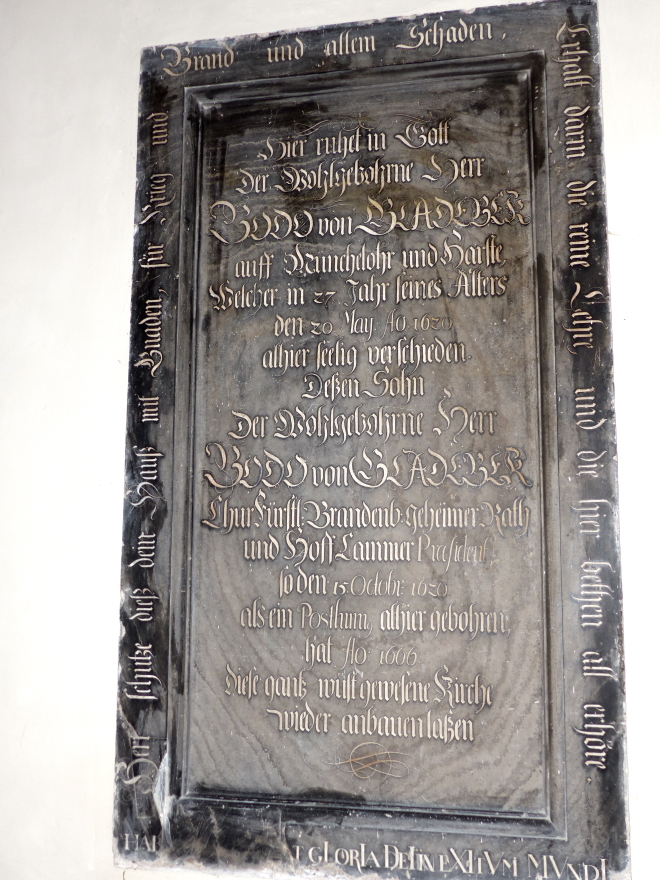 Herr schütze dieß dein Hauß mit Gnaden, für Krieg und
Brand und allem Schaden.
Erhalt darin die reine Lehre und die hier bethen all erhöre.
Hier ruhet in Gott
Der Wohlgebohrne Herr
BODO von GLADEBEK
auff Münchelohr und Harste
Welcher in 27 Jahr seines Alters
den 20 May Aō 1620
alhier seelig verschieden.
Deßen Sohn
Der Wohlgebohrne Herr
BODO von GLADEBEK
Chur Fürstl: Brandenb: geheimer Rath
und Hoff Cammer Præsident,
so den 15 Octobr: 1620
als ein Posthum, alhier gebohren,
hat Aō: 1666
diese gantz wüst gewesene Kirche
wieder anbauen laßen
GLorIa DeI In eXItVM MVnDI